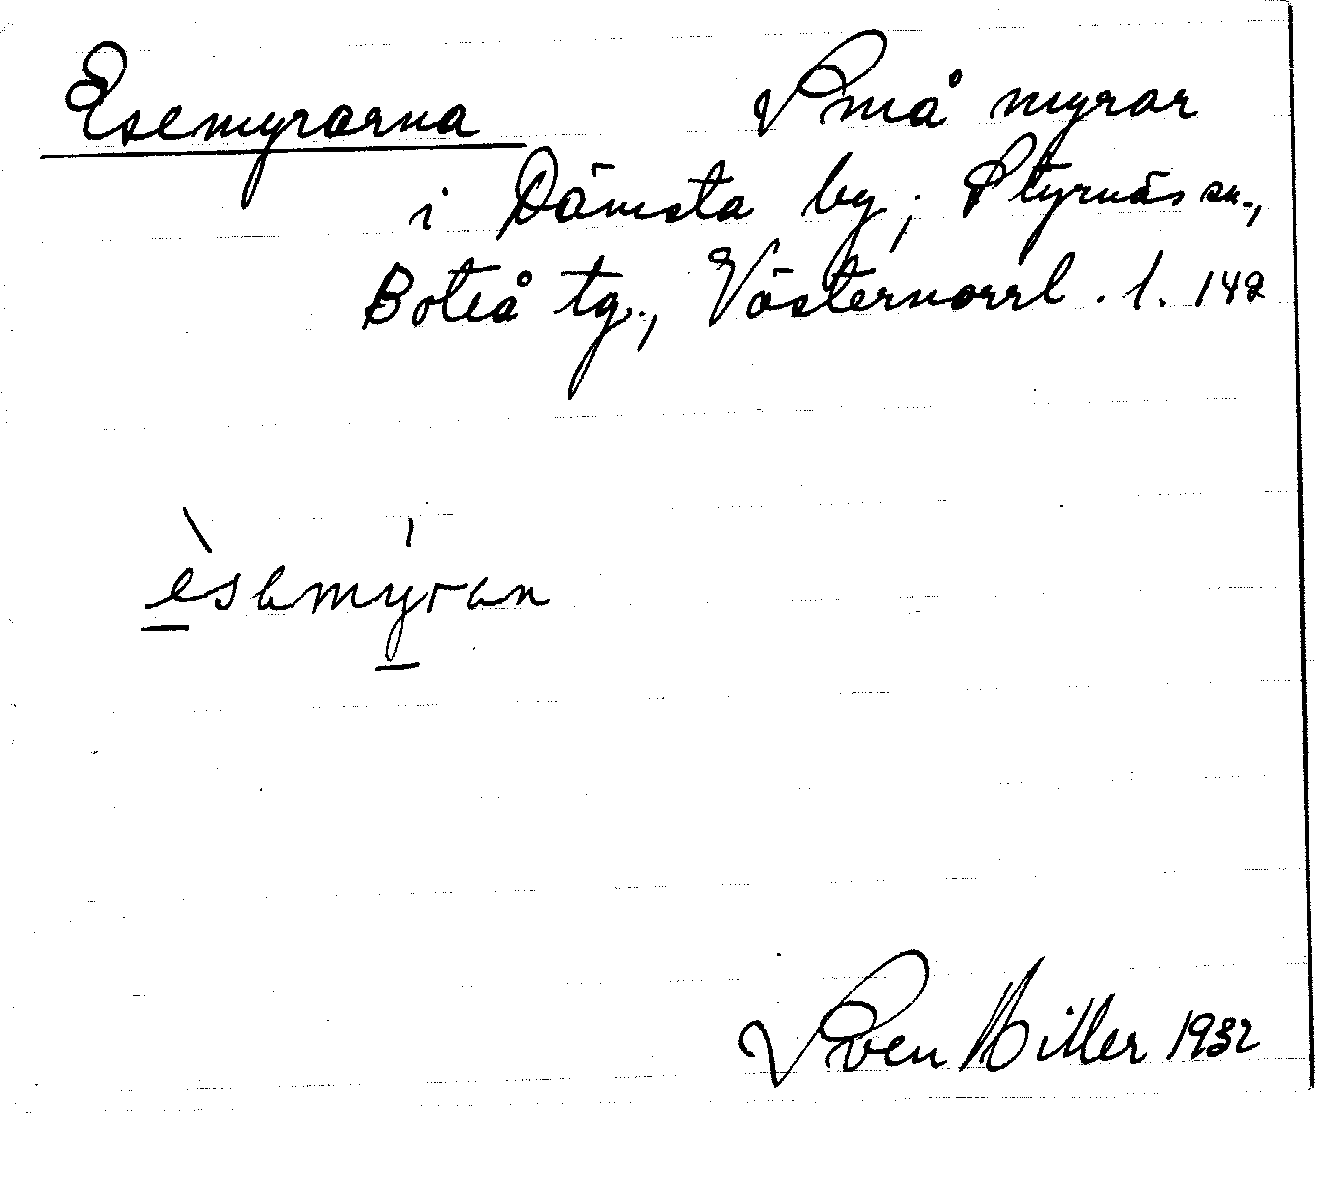 Esemyrarna Små myrar
i Dämsta by, Styrnäs sn.,
Boteå tg., Västernorrl. l. 142
èsamýran
Sven Hiller 1932